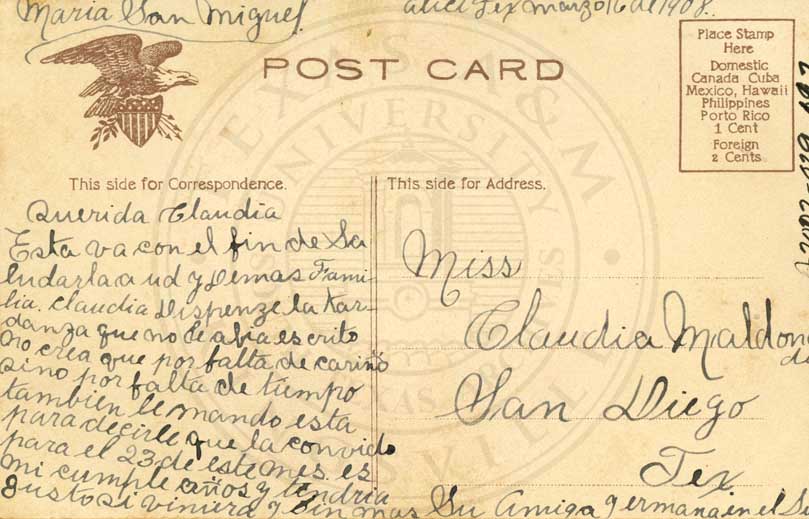 Maria San Miguel
Alice Tex marzo 16 de 1908.
POST CARD
Place Stamp
Here
Domestic
Canada Cuba
Mexico, Hawaii
Philippines
Porto Rico
1 Cent
Foreign
2 Cents
This side for Correspondence.
This side for Address.
Querida Claudia
Esta va con el fin de Sa
ludarla a ud y Demas Fami
lia. Claudia Dispenze la tar-
danza que no le abia escrito
no crea que por falta de cariño
sino por falta de tiempo
tambien le mando esta
para decirle que la convido
para el 23 de este mes. es
mi cumple años y tendria
gusto si viniera y sin mas Su Amiga y ermana en el
Miss
Claudia Maldona
do
San Diego
Tex
TEXAS A&M
UNIVERSITY
KINGSVILLE